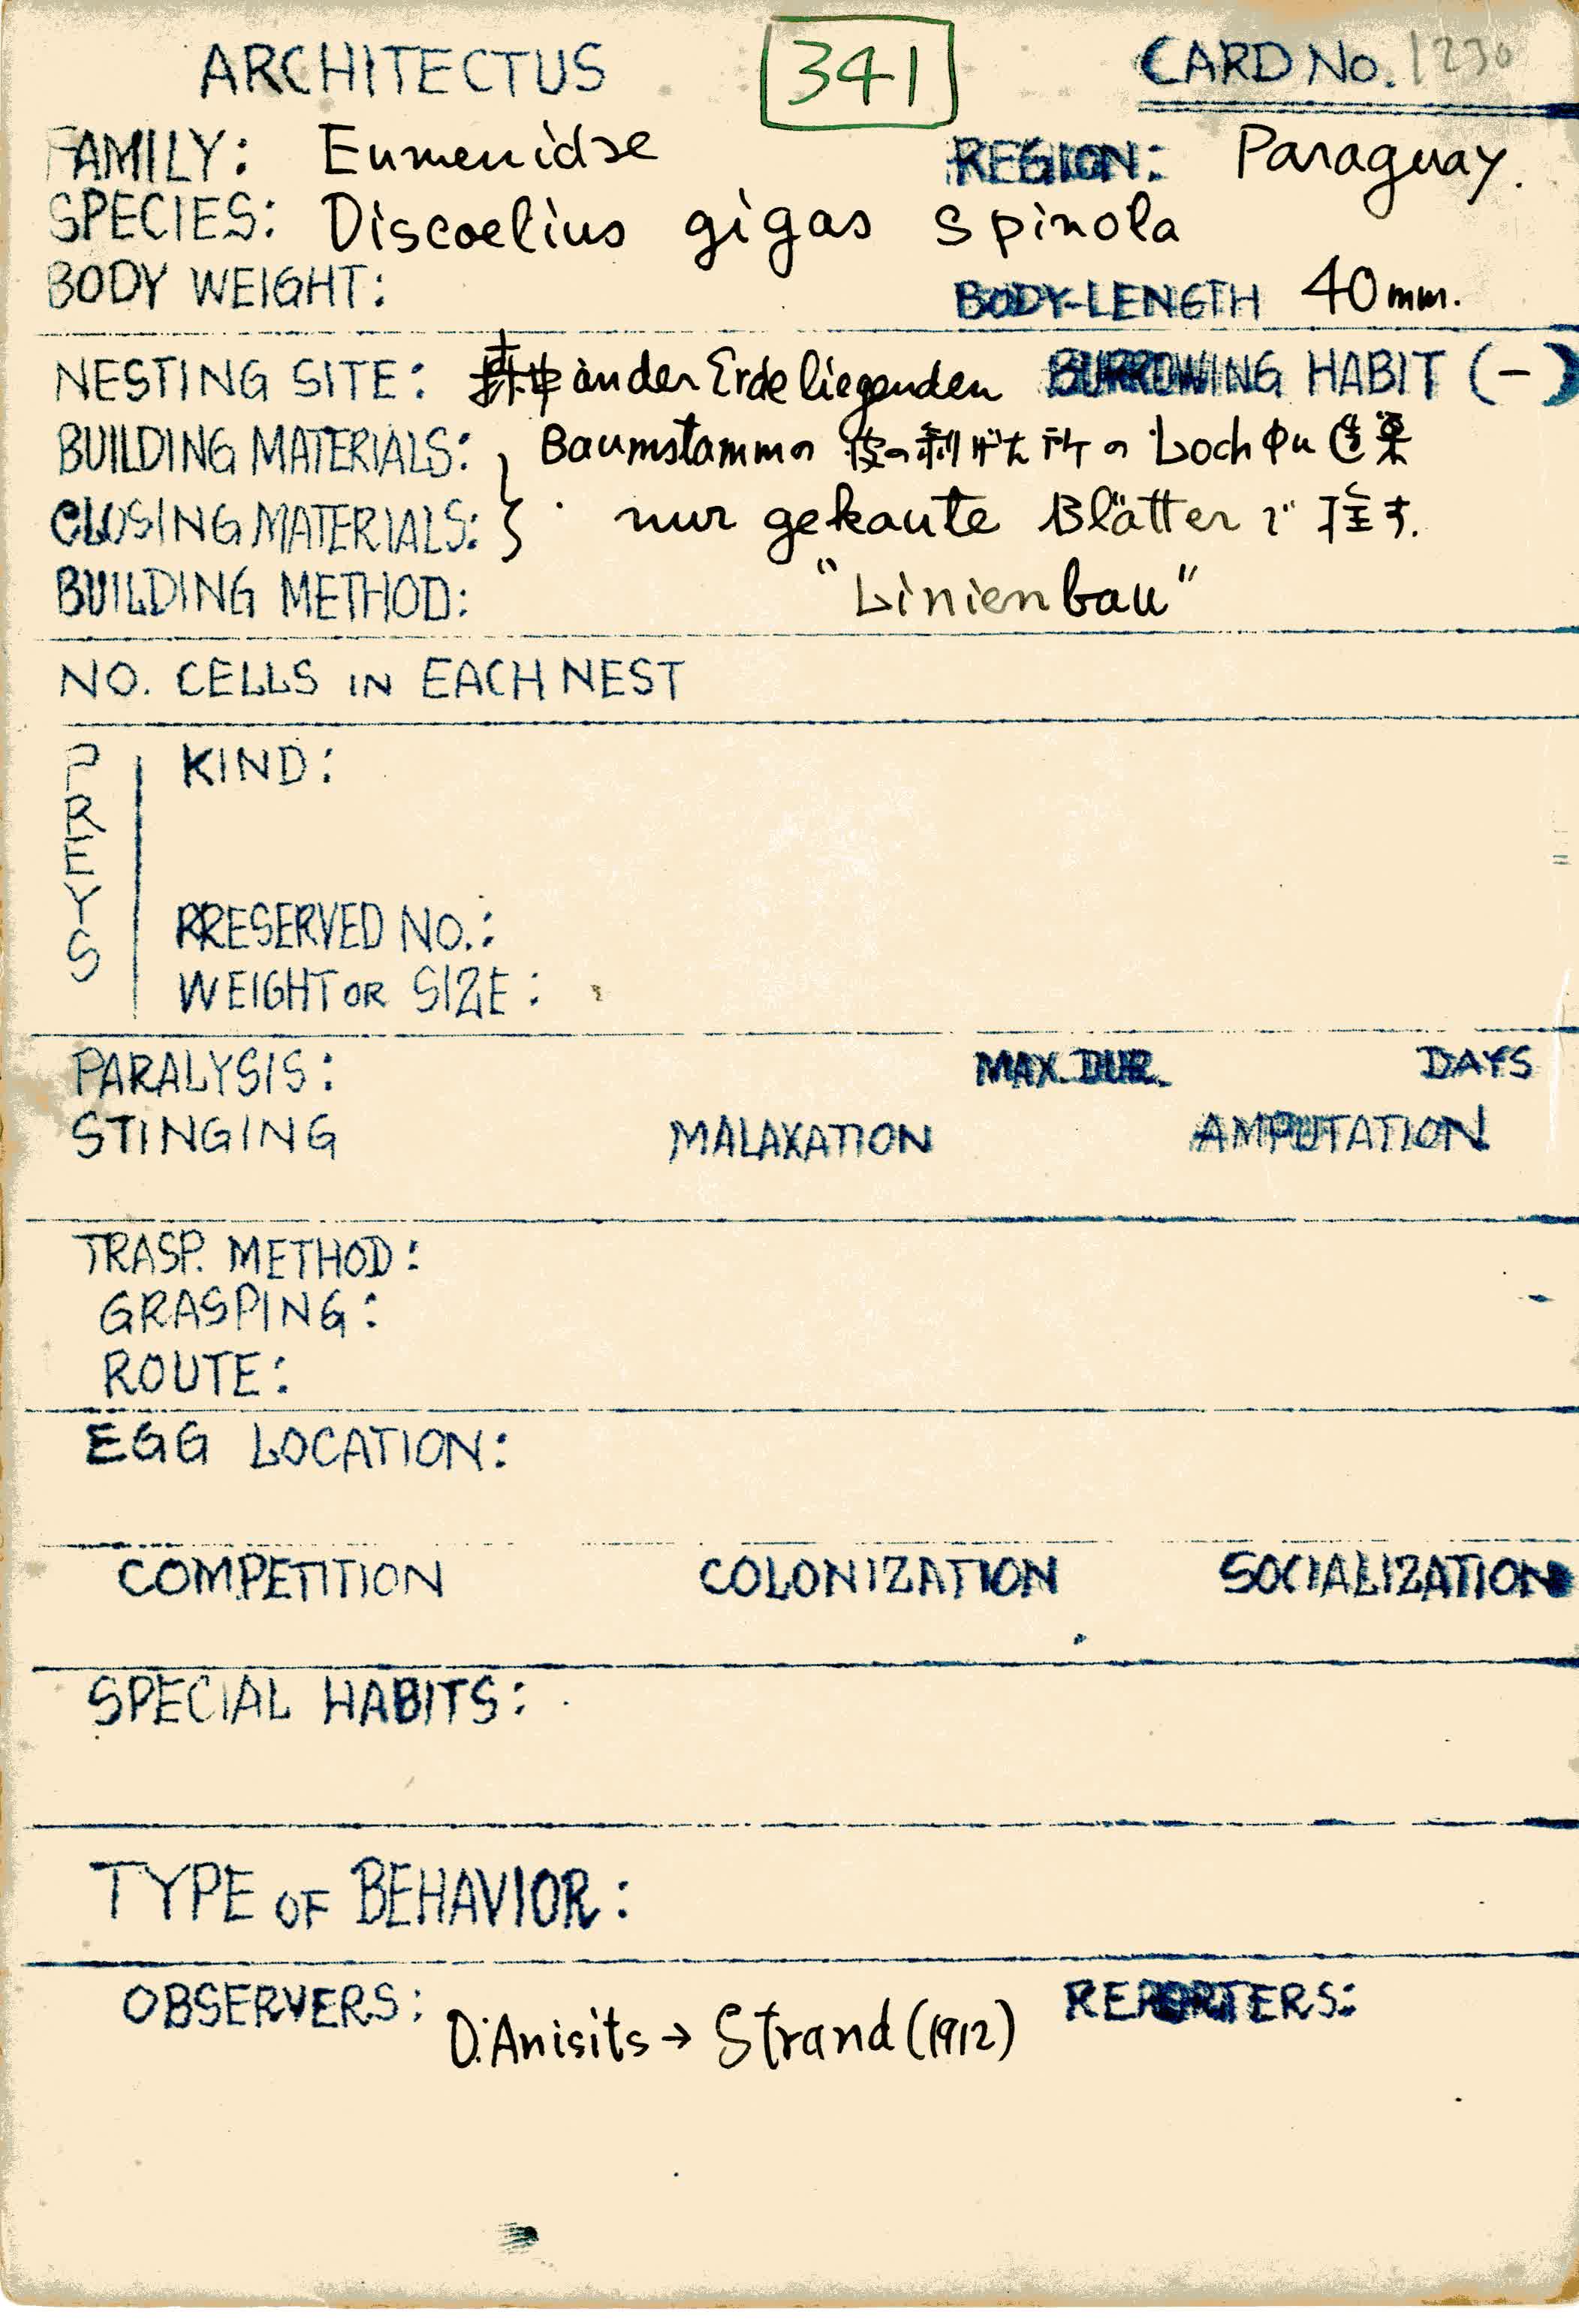 ARCHITECTUS 341 CARD No. 1230
FAMILY: Eumenidae REGION: Paraguay.
SPECIES: Discoelius gigas Spinola
BODY WEIGHT: BODY-LENGTH 40mm.
NESTING SITE: an der Erde liegenden BURROWING HABIT (-)
BUILDING MATERIALS: Baumstammの皮の剥げた所のLoch中に造巣
CLOSING MATERIALS: nur gekaute Blätterで
BUILDING METHOD: "Linienbau"
NO. CELLS IN EACH NEST
PREYS
KIND:
PRESERVED NO.:
WEIGHT OR SIZE:
PARALYSIS: MAX. DUR. DAYS
STINGING MALAXATION AMPUTATION
TRASP. METHOD:
GRASPING:
ROUTE:
EGG LOCATION:
COMPETITION COLONIZATION SOCIALIZATION
SPECIAL HABITS:
TYPE OF BEHAVIOR:
OBSERVERS: D. Anisits → Strand (1912) REPORTERS: